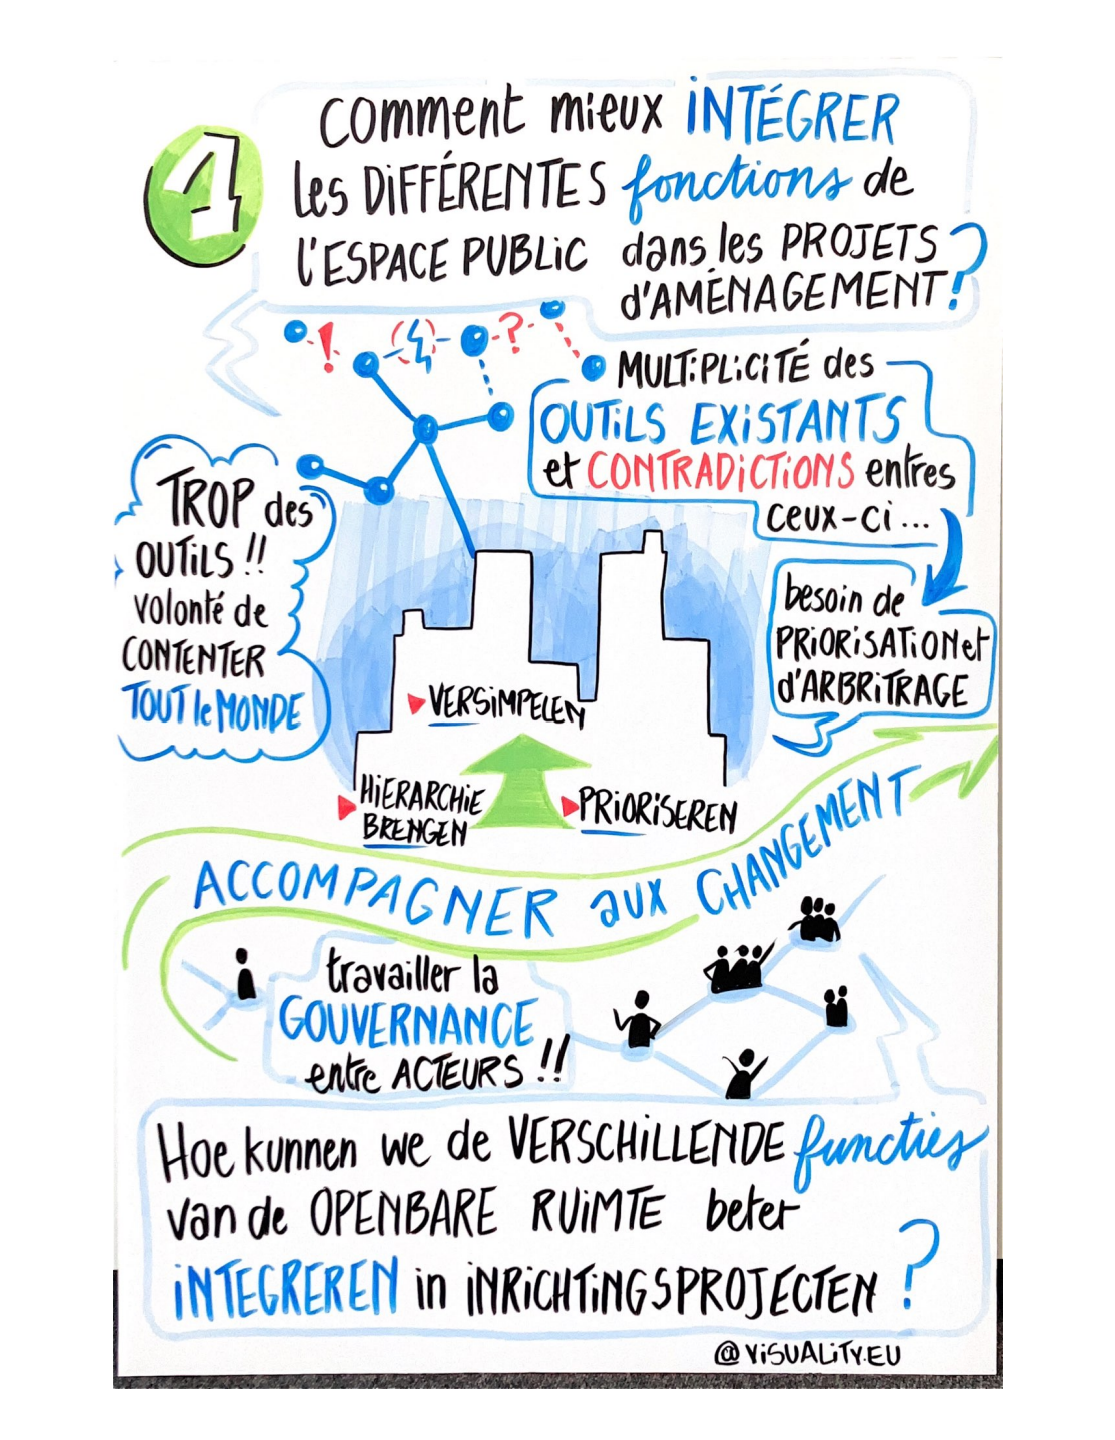 1
Comment mieux INTÉGRER
les DIFFÉRENTES fonctions de
l'ESPACE PUBLIC dans les PROJETS
d'AMÉNAGEMENT?
! ?
MULTIPLICITÉ des
OUTILS EXISTANTS
et CONTRADICTIONS entres
ceux-ci...
TROP des
OUTILS !!
volonté de
CONTENTER
TOUT le MONDE
besoin de
PRIORISATION et
d'ARBRITRAGE
VERSIMPELEN
HIERARCHIE
BRENGEN
PRIORISEREN
ACCOMPAGNER aux CHANGEMENT
travailler la
GOUVERNANCE
entre ACTEURS !!
Hoe kunnen we de VERSCHILLENDE functies
van de OPENBARE RUIMTE beter
INTEGREREN in INRICHTINGSPROJECTEN ?
@VISUALITY.EU